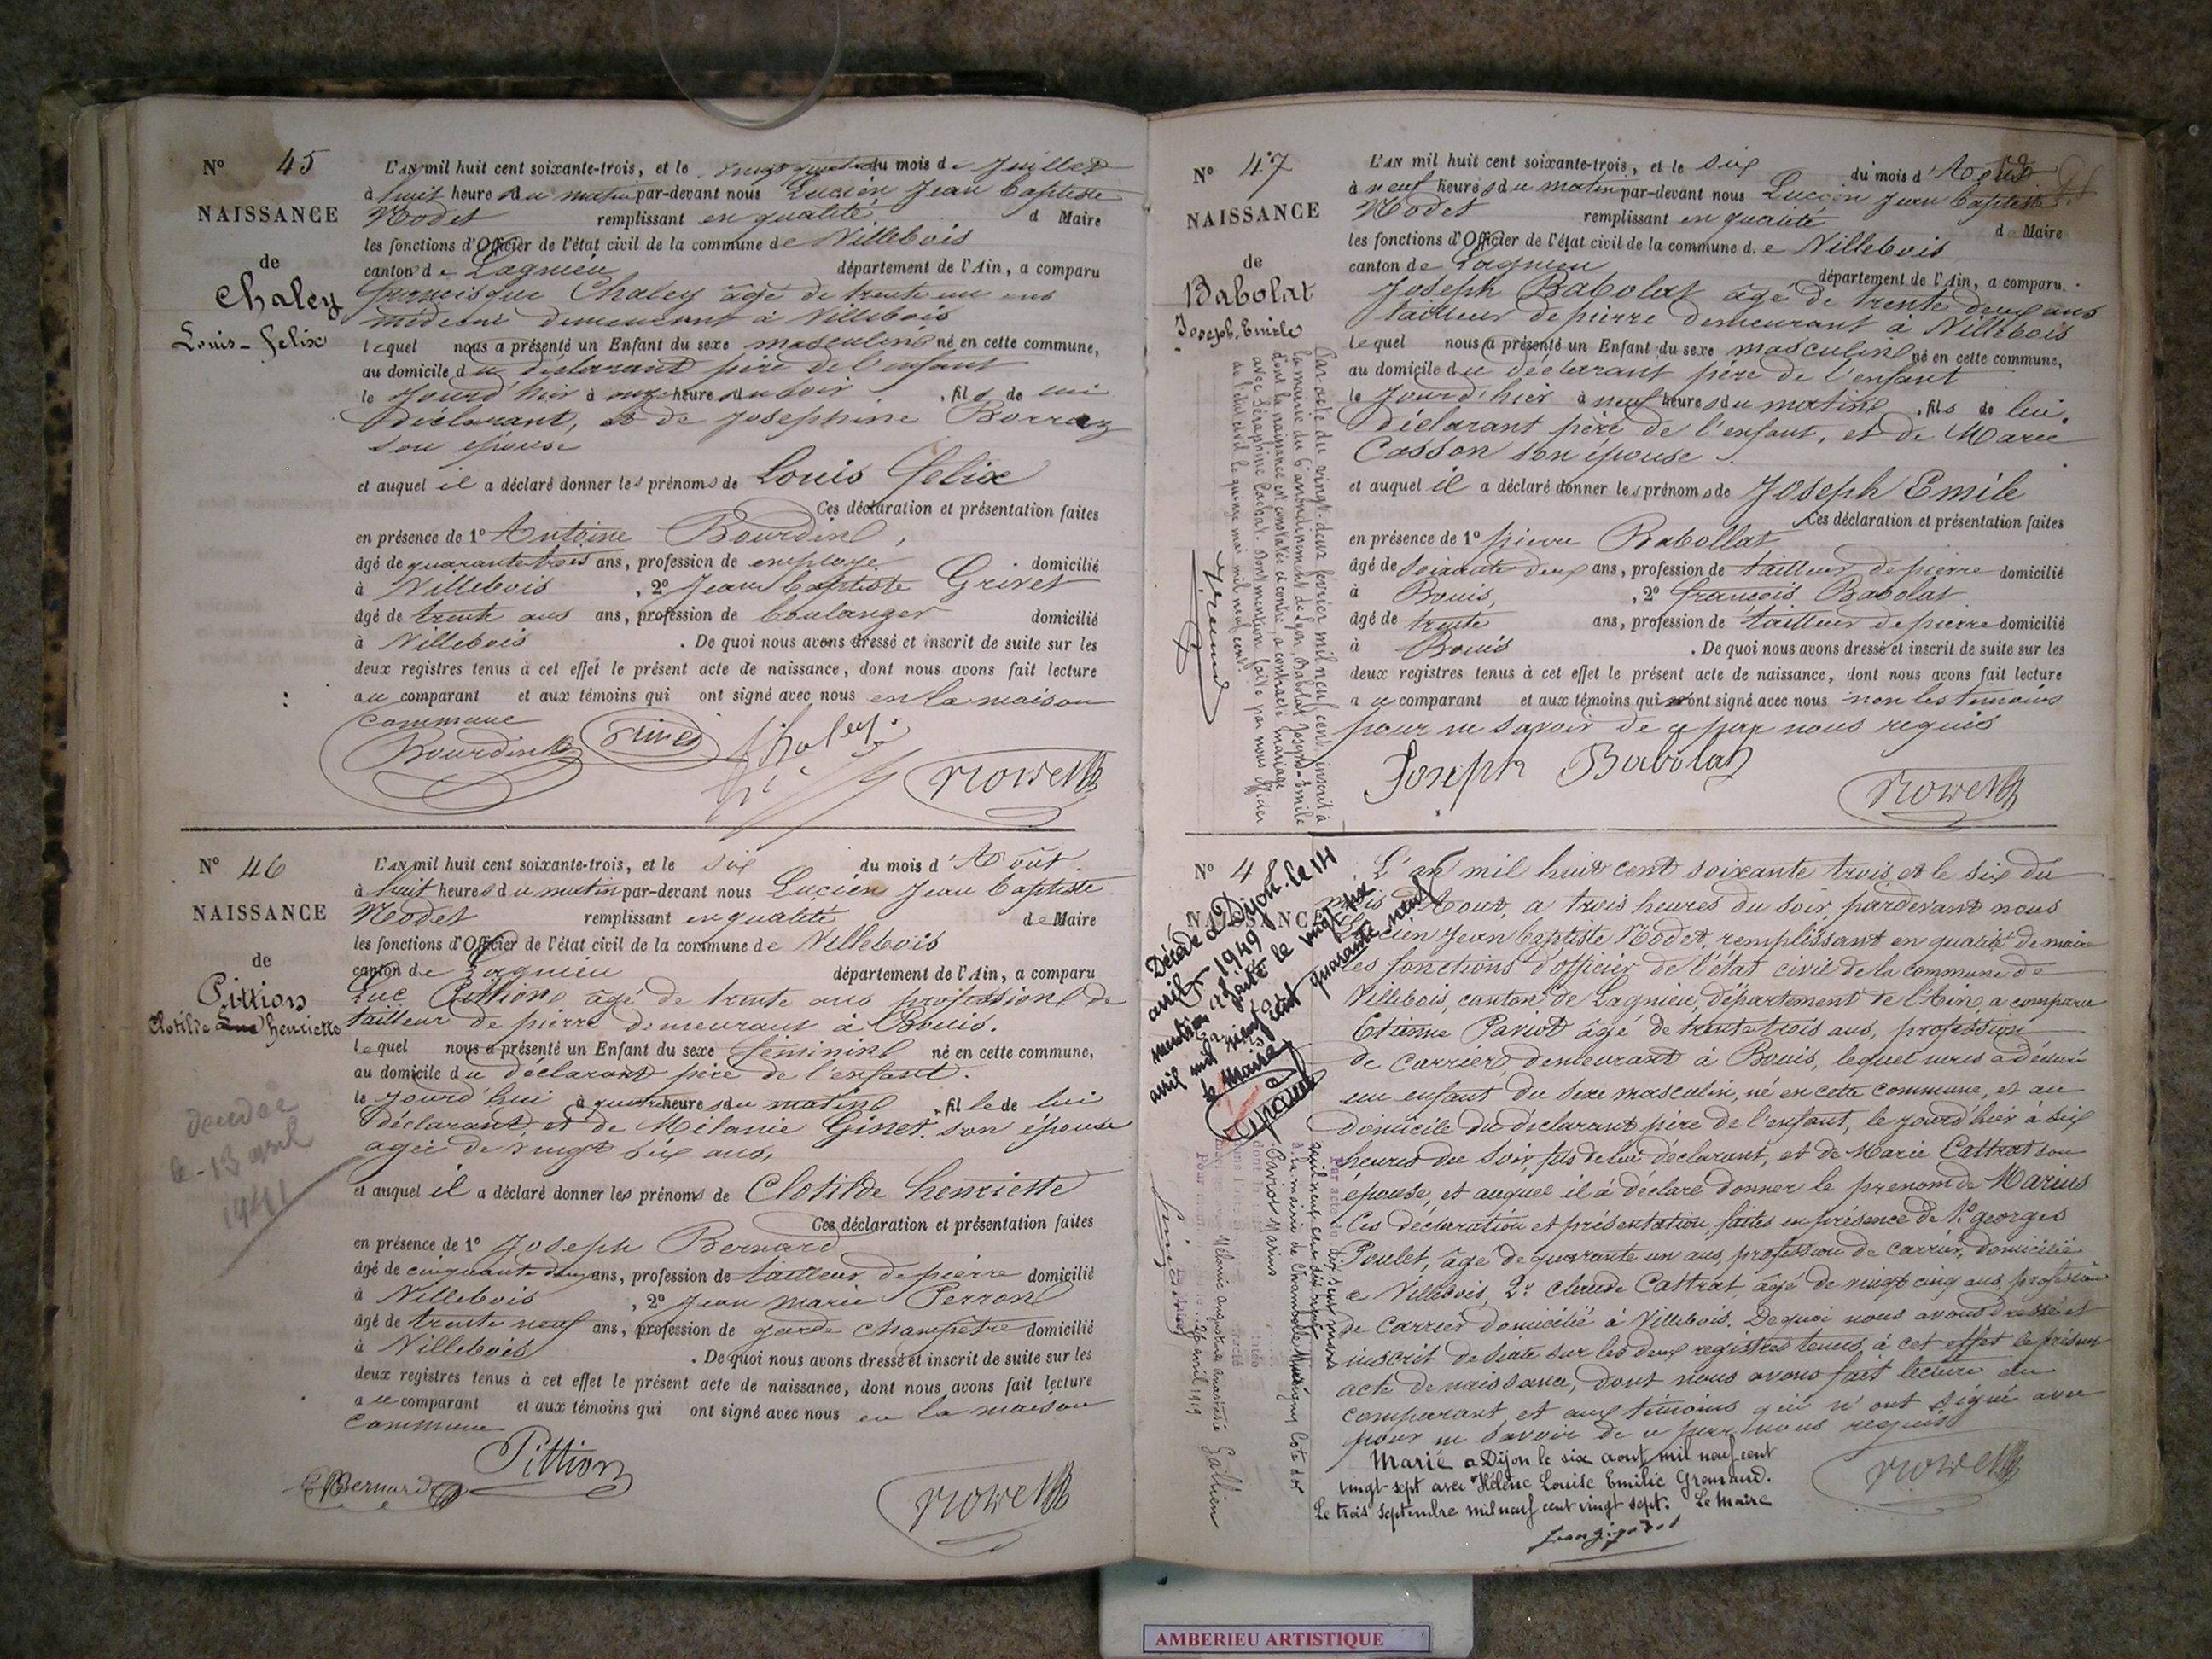 N° 45
NAISSANCE
de
Chaley
Louis-Felix
L'AN mil huit cent soixante-trois, et le du mois de Juillet
à huit heures du matin par-devant nous Lucien Jean Baptiste
Rodet remplissant en qualité d Maire
les fonctions d'Officier de l'état civil de la commune de Villebois
canton de Lagnieu département de l'Ain, a comparu
francisque Chaley âgé de trente un ans
médecin demeurant à Villebois
lequel nous a présenté un Enfant du sexe masculin né en cette commune,
au domicile du déclarant père de l'enfant
le jourd'hier à onze heure du soir, fils de lui
déclarant, et de Josephine Borraz
son épouse
et auquel il a déclaré donner les prénoms de Louis Felix
Ces déclaration et présentation faites
en présence de 1° Antoine Bourdin,
âgé de quarante trois ans, profession de employé domicilié
à Villebois, 2° Jean Baptiste Grivet
âgé de trente ans ans, profession de boulanger domicilié
à Villebois. De quoi nous avons dressé et inscrit de suite sur les
deux registres tenus à cet effet le présent acte de naissance, dont nous avons fait lecture
au comparant et aux témoins qui ont signé avec nous en la maison
commune
Bourdin Grivet f Chaley
N° 46
NAISSANCE
de
Pittion
Clotilde Luc henriette
décédée
le 13 avril
1941
L'AN mil huit cent soixante-trois, et le six du mois d'Août
à huit heures du matin par-devant nous Lucien Jean Baptiste
Rodet remplissant en qualité de Maire
les fonctions d'Officier de l'état civil de la commune de Villebois
canton de Lagnieu département de l'Ain, a comparu
Luc Pittion âgé de trente ans profession de
tailleur de pierre demeurant à Bouis.
lequel nous a présenté un Enfant du sexe féminin né en cette commune,
au domicile du déclarant père de l'enfant.
le jourd'hui à quatre heures du matin, fille de lui
déclarant, et de Mélanie Ginet son épouse
agée de vingt six ans,
et auquel il a déclaré donner les prénoms de Clotilde henriette
Ces déclaration et présentation faites
en présence de 1° Joseph Bernard
âgé de cinquante deux ans, profession de tailleur de pierre domicilié
à Villebois, 2° Jean marie Perron
âgé de trente neuf ans, profession de garde champêtre domicilié
à Villebois. De quoi nous avons dressé et inscrit de suite sur les
deux registres tenus à cet effet le présent acte de naissance, dont nous avons fait lecture
au comparant et aux témoins qui ont signé avec nous en la maison
commune
Bernard Pittion
N° 47
NAISSANCE
de
Babolat
Joseph. Emile
Par acte du vingt-deux février mil neuf cent, inscrit à
la mairie du 6e arrondissement de Lyon Babolat Joseph-Emile
dont la naissance est constatée ci-contre, a contracté mariage
avec Séraphine. Dont mention faite par nous officier
de l'état civil le quinze mai mil neuf cent.
L'AN mil huit cent soixante-trois, et le six du mois d'Août
à neuf heures du matin par-devant nous Lucien Jean Baptiste
Rodet remplissant en qualité de Maire
les fonctions d'Officier de l'état civil de la commune de Villebois
canton de Lagnieu département de l'Ain, a comparu
Joseph Babolat âgé de trente deux ans
tailleur de pierre demeurant à Villebois
lequel nous a présenté un Enfant du sexe masculin né en cette commune,
au domicile du déclarant père de l'enfant
le jourd'hier à neuf heures du matin, fils de lui
déclarant père de l'enfant, et de Marie
Casson son épouse.
et auquel il a déclaré donner les prénoms de Joseph Emile
Ces déclaration et présentation faites
en présence de 1° pierre Babollat
âgé de soixante deux ans, profession de tailleur de pierre domicilié
à Bouis, 2° francois Babolat
âgé de trente ans, profession de tailleur de pierre domicilié
à Bouis. De quoi nous avons dressé et inscrit de suite sur les
deux registres tenus à cet effet le présent acte de naissance, dont nous avons fait lecture
au comparant et aux témoins qui ont signé avec nous non les temoins
pour ne savoir de ce par nous requis
Joseph Babolat
N° 48
NAISSANCE
Décédé à Dijon. le 14
avril 1949
mention faite le vingt six
avril mil neuf cent quarante neuf
le Maire
L'an mil huit cent soixante trois et le six du
mois d'Aout, a trois heures du soir, pardevant nous
Lucien Jean Baptiste Rodet, remplissant en qualité de maire
les fonctions d'officier de l'état civil de la commune de
Villebois, canton de Lagnieu, département de l'Ain, a comparu
Etienne Pariot âgé de trente trois ans, profession
de carrier, demeurant à Bouis, lequel nous a
un enfant du sexe masculin, né en cette commune, et au
domicile du déclarant père de l'enfant, le jourd'hier à six
heures du soir, fils de lui déclarant, et de Marie Cattrat son
épouse, et auquel il a déclaré donner le prenom de Marius
Ces déclaration et présentation, faites en présence de 1° georges
Poulet, âgé de quarante un ans, profession de carrier, domicilié
a Villebois, 2° Claude Cattrat âgé de vingt cinq ans, profession
de carrier domicilié à Villebois. De quoi nous avons dressé et
inscrit de suite sur les deux registres tenus à cet effet le présent
acte de naissance, dont nous avons fait lecture au
comparant et aux témoins qui n'ont signé avec
pour ne savoir de ce par nous requis
Marié a Dijon le six aout mil neuf cent
vingt sept avec Hélène Louise Emilie Gremaud.
Le trois Septembre mil neuf cent vingt sept. Le Maire
Par acte du dix sept mars
mil neuf cent dix neuf
à la mairie de Chambolle Musigny Cote d'or
Pariot Marius
Mélanie Augustine Anastasie Galien
26 avril 1919
AMBERIEU ARTISTIQUE